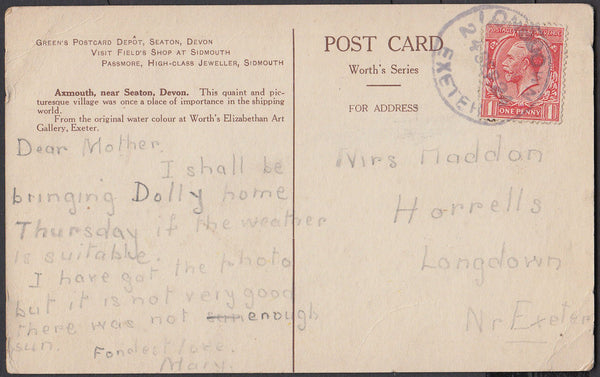 GREEN'S POSTCARD DEPÔT, SEATON, DEVON
VISIT FIELD'S SHOP AT SIDMOUTH
PASSMORE, HIGH-CLASS JEWELLER, SIDMOUTH
Axmouth, near Seaton, Devon. This quaint and pic-
turesque village was once a place of importance in the shipping
world.
From the original water colour at Worth's Elizabethan Art
Gallery, Exeter.
Dear Mother,
I shall be
bringing Dolly home
Thursday if the weather
is suitable.
I have got the photo
but it is not very good
there was not enough
sun.
Fondest love.
Mary.
POST CARD
Worth's Series
FOR ADDRESS
POSTAGE REVENUE
ONE PENNY
EXETER
Mrs Maddon
Horrells
Longdown
Nr Exeter